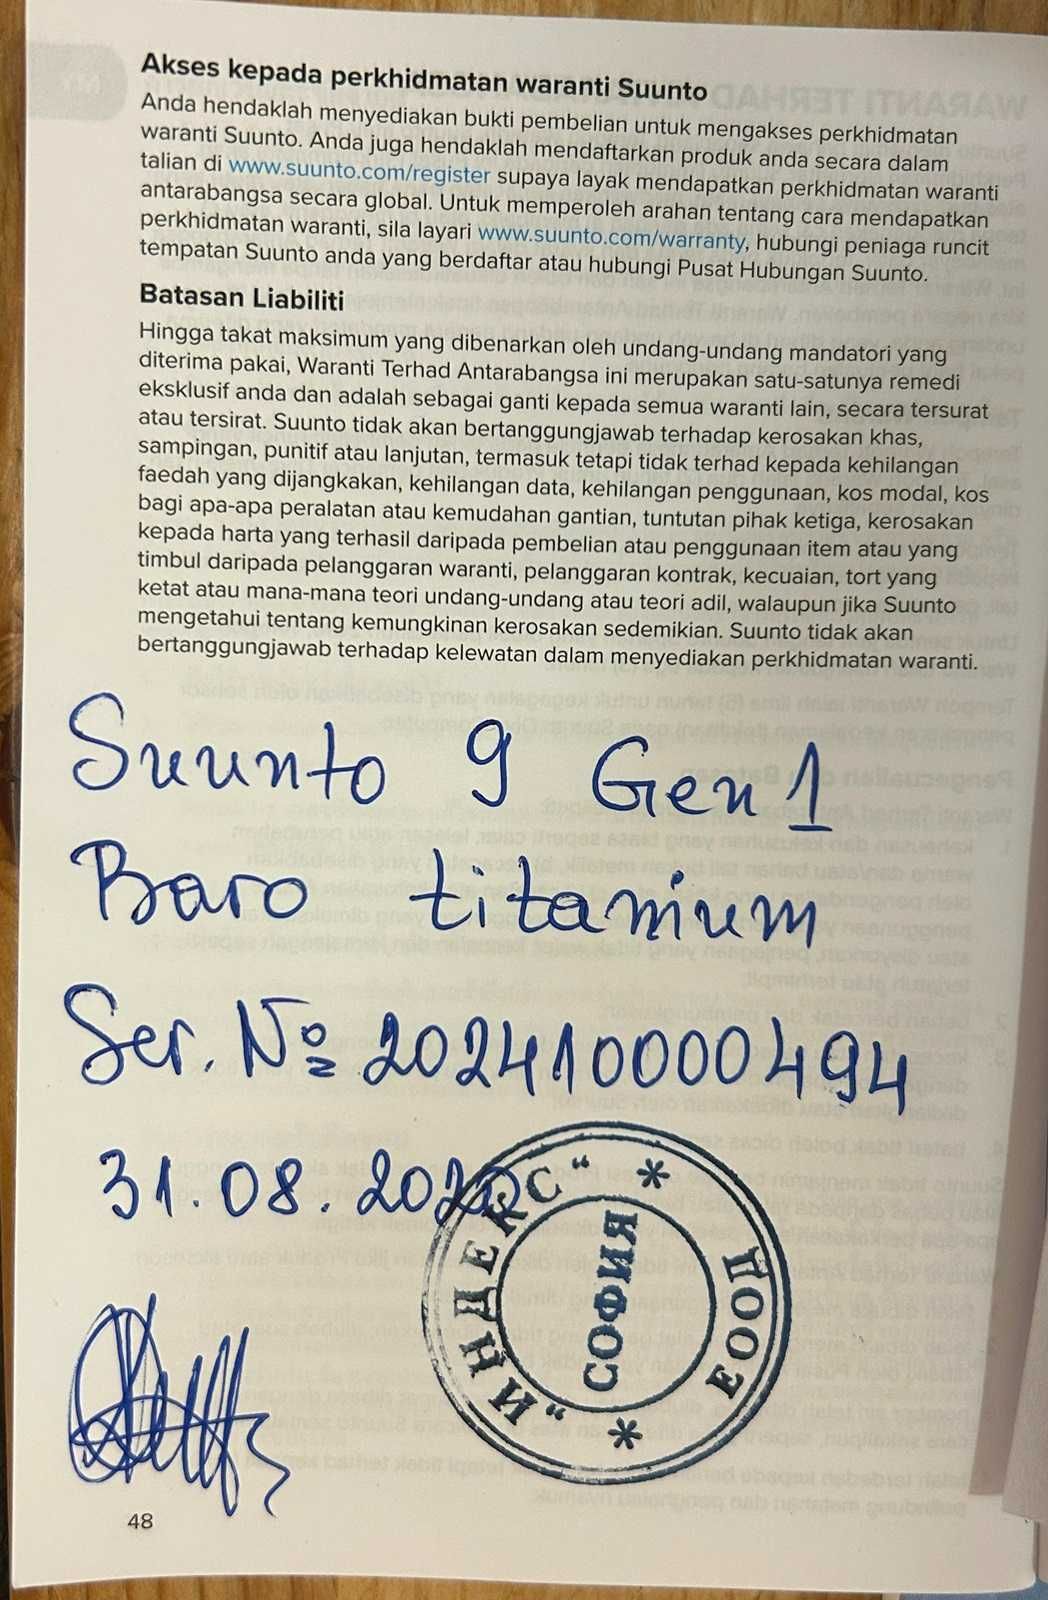 Akses kepada perkhidmatan waranti Suunto
Anda hendaklah menyediakan bukti pembelian untuk mengakses perkhidmatan
waranti Suunto. Anda juga hendaklah mendaftarkan produk anda secara dalam
talian di www.suunto.com/register supaya layak mendapatkan perkhidmatan waranti
antarabangsa secara global. Untuk memperoleh arahan tentang cara mendapatkan
perkhidmatan waranti, sila layari www.suunto.com/warranty, hubungi peniaga runcit
tempatan Suunto anda yang berdaftar atau hubungi Pusat Hubungan Suunto.
Batasan Liabiliti
Hingga takat maksimum yang dibenarkan oleh undang-undang mandatori yang
diterima pakai, Waranti Terhad Antarabangsa ini merupakan satu-satunya remedi
eksklusif anda dan adalah sebagai ganti kepada semua waranti lain, secara tersurat
atau tersirat. Suunto tidak akan bertanggungjawab terhadap kerosakan khas,
sampingan, punitif atau lanjutan, termasuk tetapi tidak terhad kepada kehilangan
faedah yang dijangkakan, kehilangan data, kehilangan penggunaan, kos modal, kos
bagi apa-apa peralatan atau kemudahan gantian, tuntutan pihak ketiga, kerosakan
kepada harta yang terhasil daripada pembelian atau penggunaan item atau yang
timbul daripada pelanggaran waranti, pelanggaran kontrak, kecuaian, tort yang
ketat atau mana-mana teori undang-undang atau teori adil, walaupun jika Suunto
mengetahui tentang kemungkinan kerosakan sedemikian. Suunto tidak akan
bertanggungjawab terhadap kelewatan dalam menyediakan perkhidmatan waranti.
Suunto 9 Gen 1
Baro titanium
Ser. № 202410000494
31.08.
„ИНДЕКС“ * ЕООД *
СОФИЯ
48